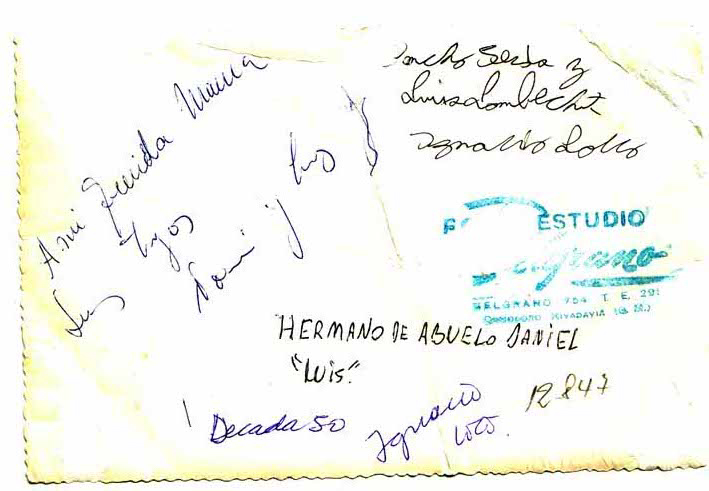 A mi Querida Mama
Sus Hijos
Dani y Luis
Pancho Serda y
Luisa Lombecht
Ignacio Lotto
ESTUDIO
Belgrano
BELGRANO 754 T. E. 291
COMODORO RIVADAVIA
HERMANO DE ABUELO DANIEL
"LUIS".
Decada 50
Ignacio
Loto.
12847